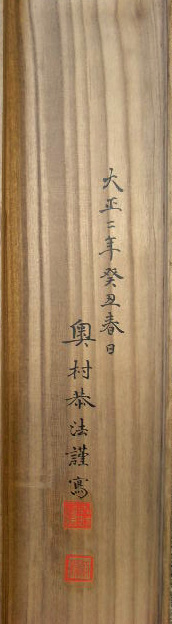 大正二年癸丑春日
奥村恭法謹寫